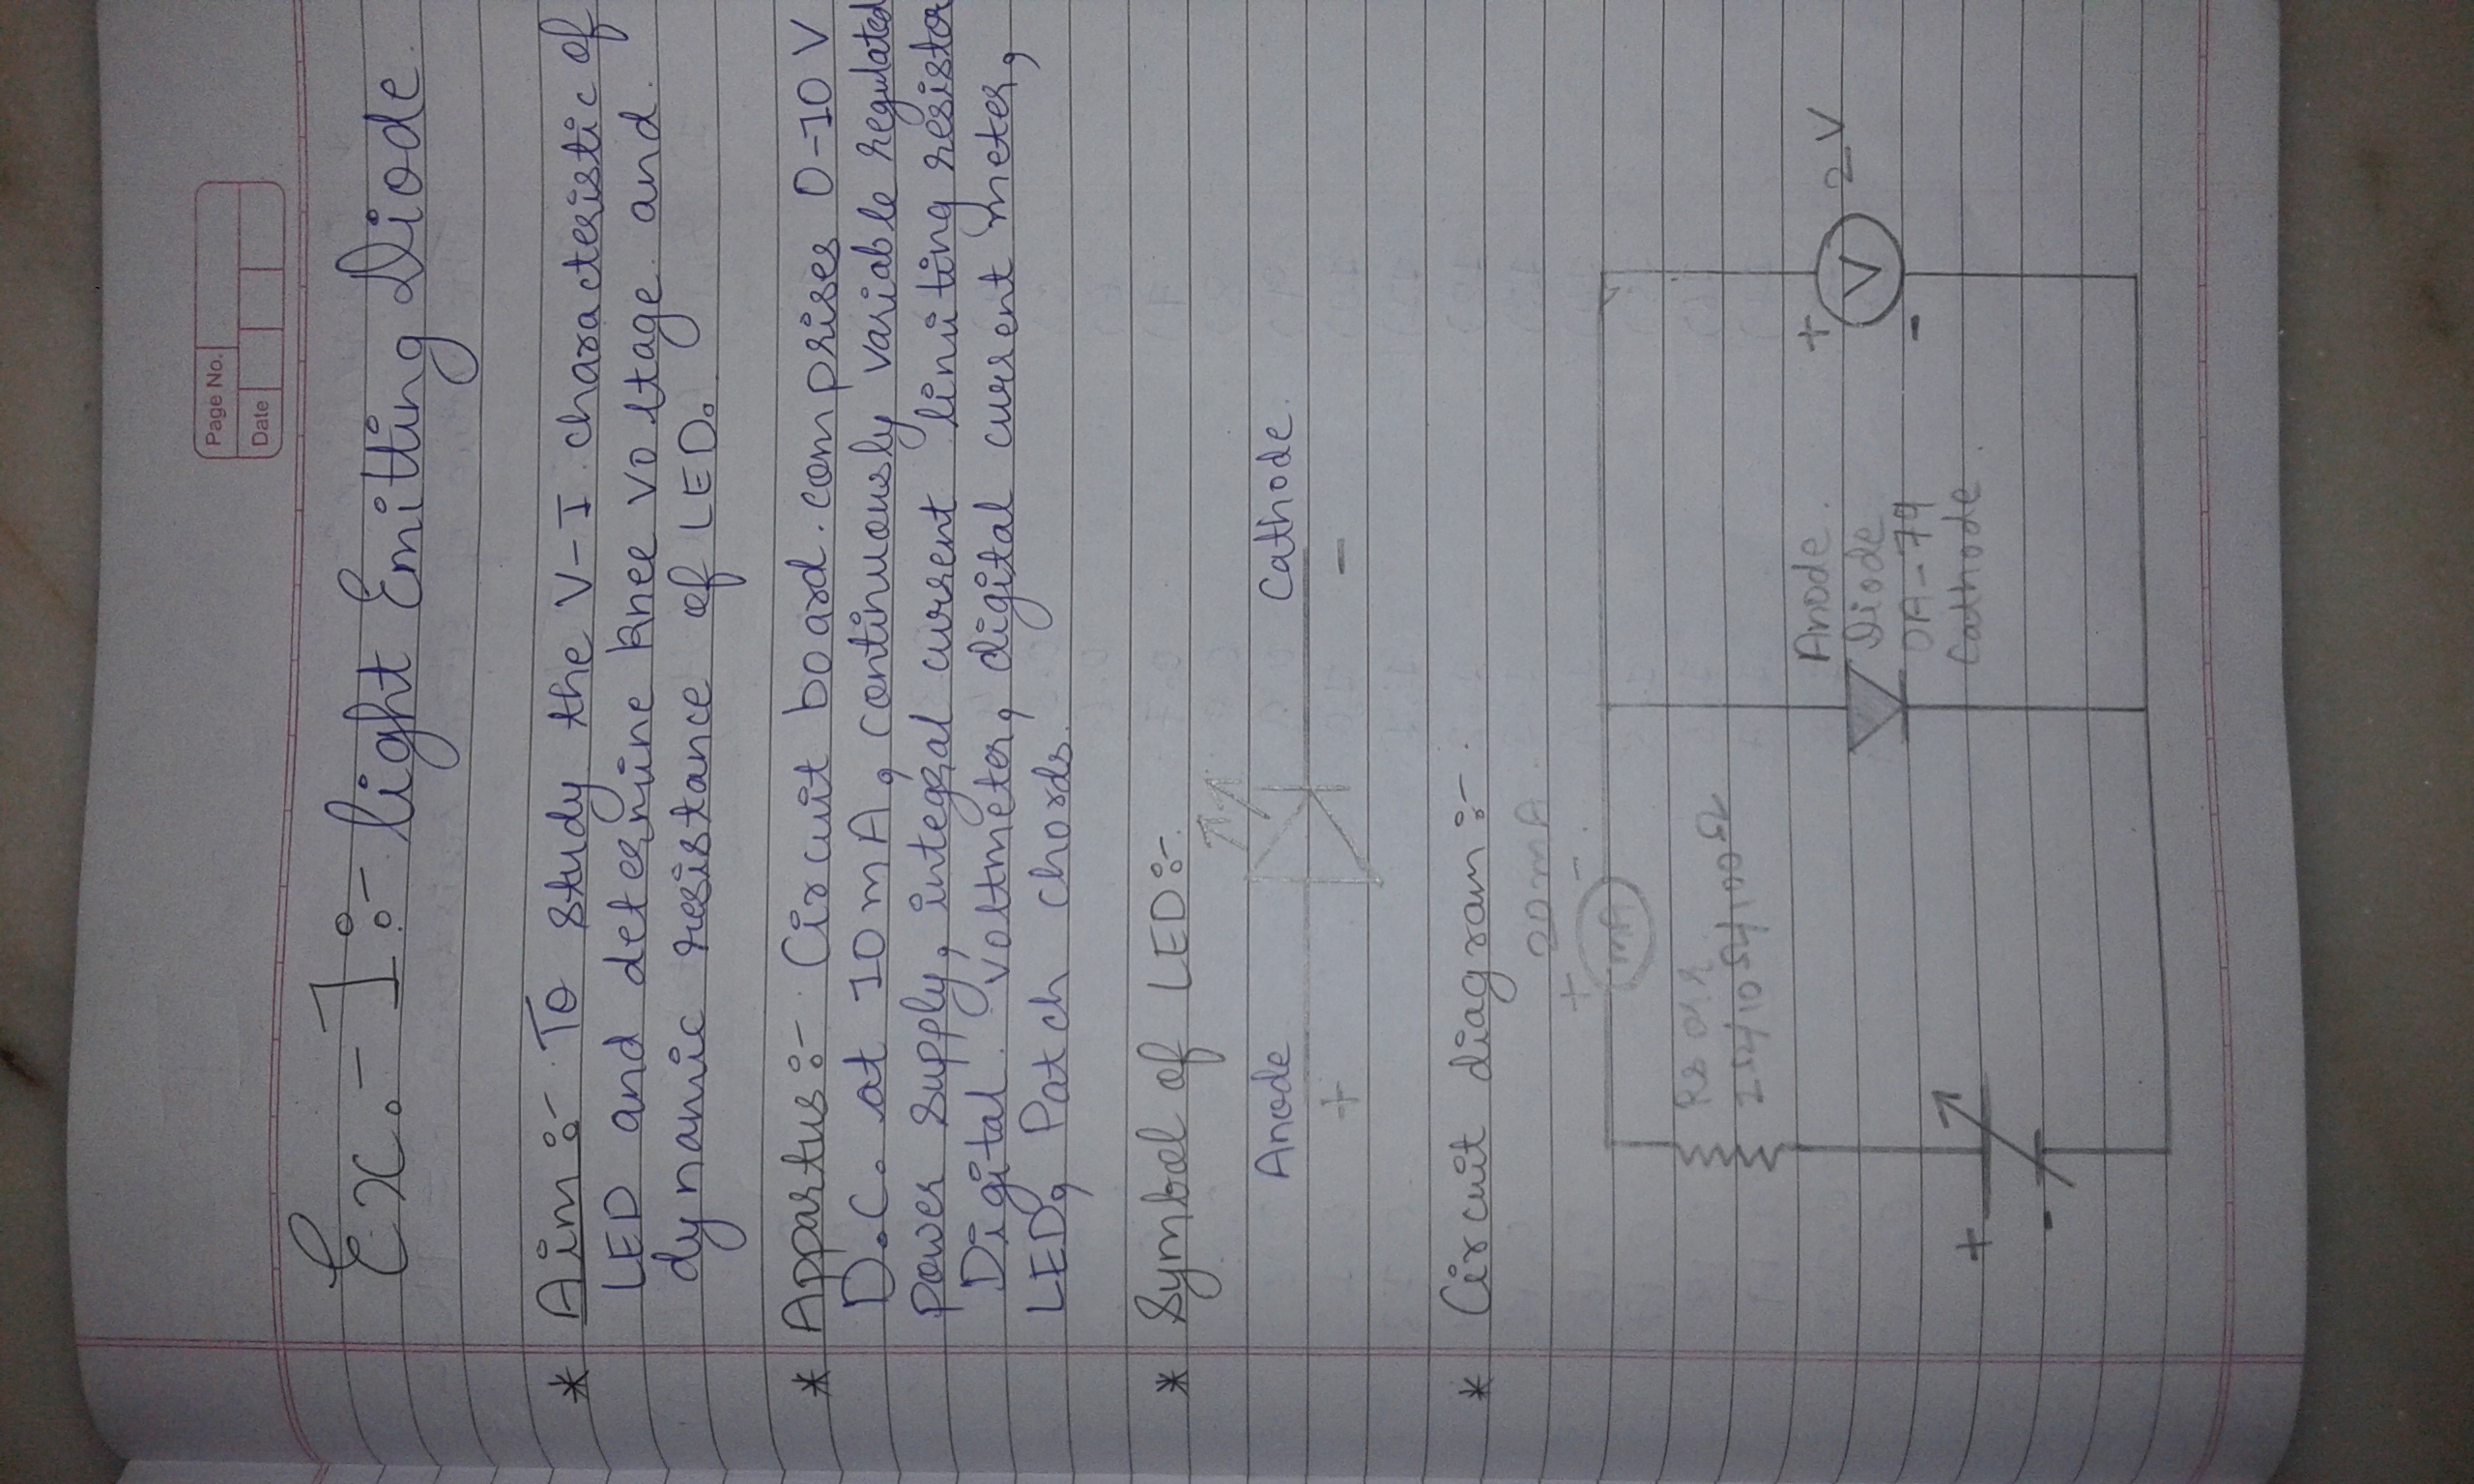 Page No.
Date
Ex. - 1 :- light Emitting Diode.
* Aim :- To study the V-I characteristic of
LED and determine knee voltage and
dynamic resistance of LED.
* Appartus :- Circuit board comprises 0-10 V
D.C. at 10 mA, continuously variable regulated
power supply, integral current limiting resistor
Digital voltmeter, digital current meter,
LED, Patch chords.
* Symbol of LED :-
Anode Cathode
+ -
* Circuit diagram :-
20 mA
+ -
mA
1Ω/10Ω/100Ω
Anode
+ V 2 V
Diode
OA-79
-
Cathode
+
-